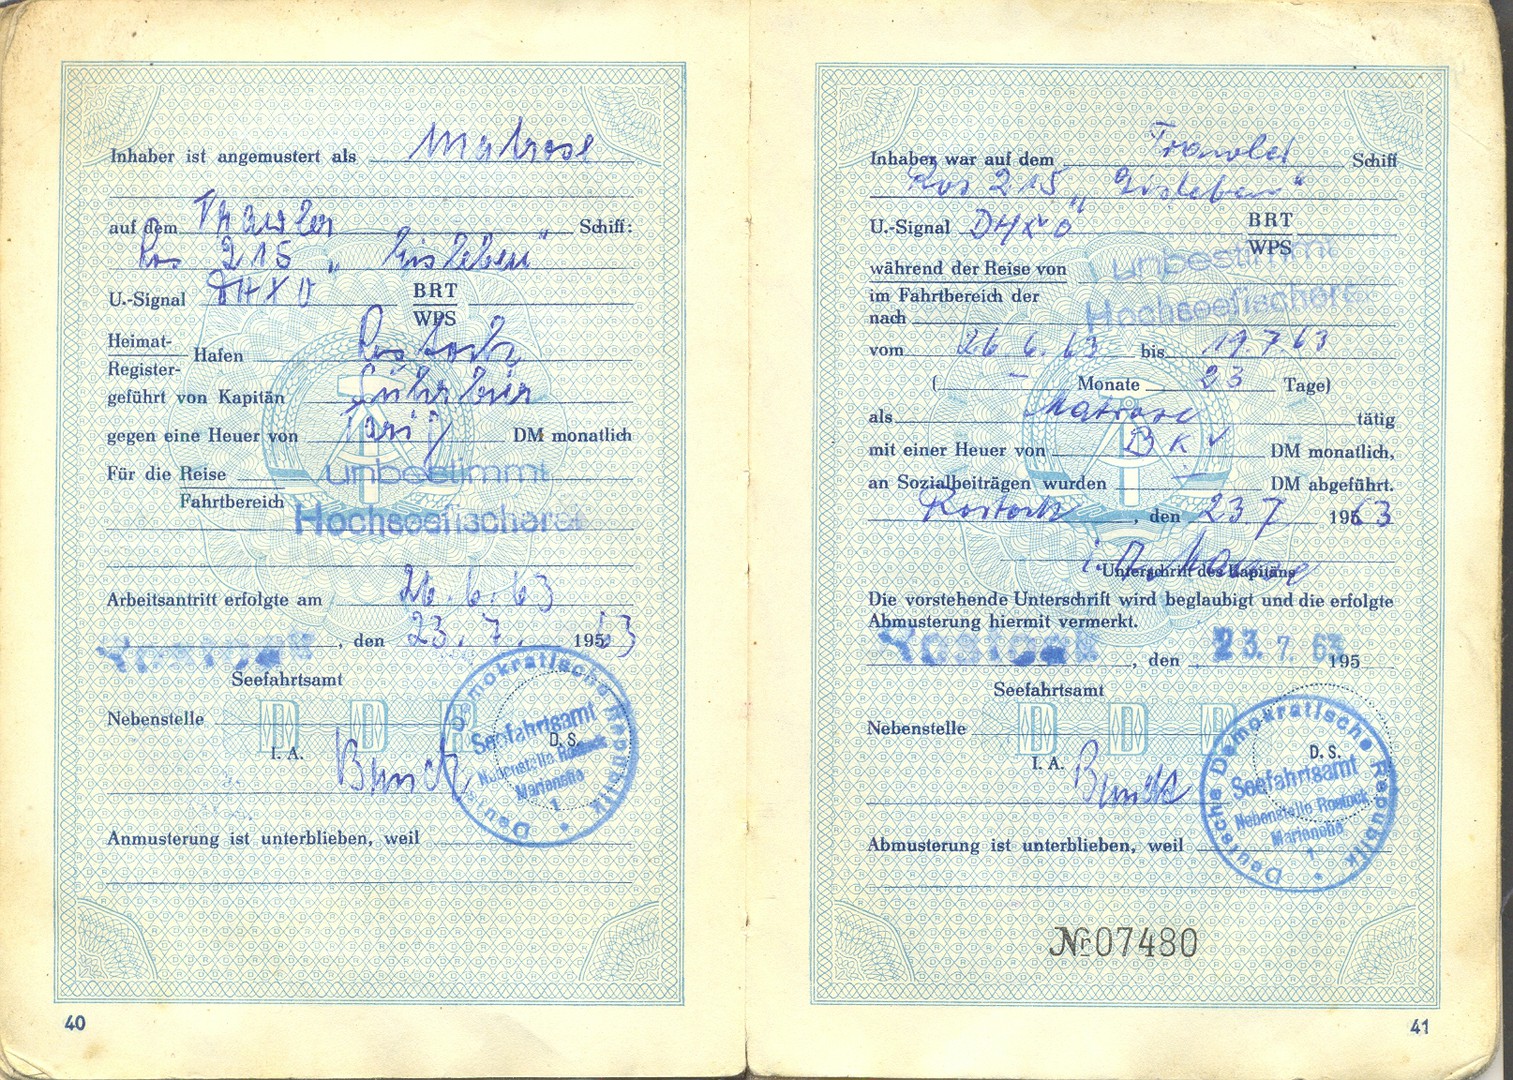 Inhaber ist angemustert als Matrose
auf dem Trawler Schiff:
Ros 215 „Eisleben"
U.-Signal DHXO BRT
WPS
Heimat-
Hafen Rostock
Register-
geführt von Kapitän
gegen eine Heuer von Tarif DM monatlich
Für die Reise unbestimmt
Fahrtbereich Hochseefischerei
Arbeitsantritt erfolgte am 26.6.63
Rostock, den 23.7. 1953
Seefahrtsamt
Nebenstelle
I. A.
D. S.
Deutsche Demokratische Republik
Seefahrtsamt
Nebenstelle Rostock
Marienehe
1
DDR
Anmusterung ist unterblieben, weil
40
Inhaber war auf dem Trawler Schiff
Ros 215 „Eisleben"
U.-Signal DHXO BRT
WPS
während der Reise von unbestimmt
im Fahrtbereich der Hochseefischerei
nach
vom 26.6.63 bis 19.7.63
( – Monate 23 Tage)
als Matrose tätig
mit einer Heuer von BKV DM monatlich,
an Sozialbeiträgen wurden — DM abgeführt.
Rostock, den 23.7 1963
Unterschrift des Kapitäns
Die vorstehende Unterschrift wird beglaubigt und die erfolgte
Abmusterung hiermit vermerkt.
Rostock, den 23.7.63 195
Seefahrtsamt
Nebenstelle
I. A.
D. S.
Deutsche Demokratische Republik
Seefahrtsamt
Nebenstelle Rostock
Marienehe
1
DDR
Abmusterung ist unterblieben, weil
Nr 07480
41